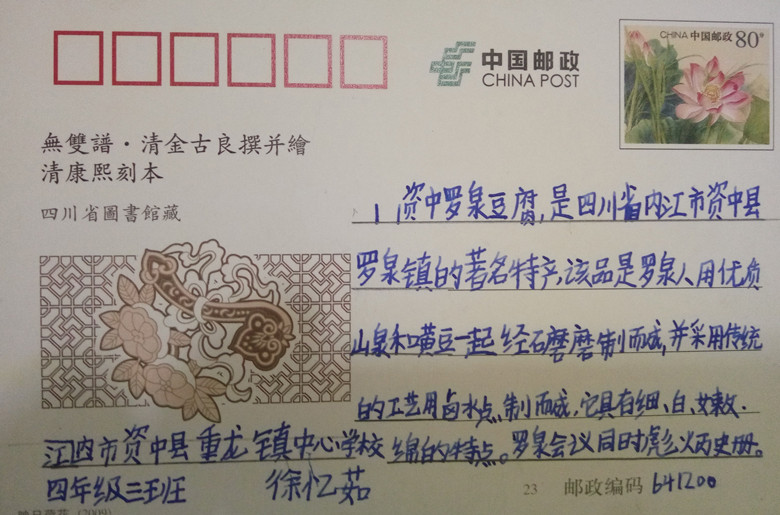 中国邮政
CHINA POST
CHINA 中国邮政 80分
無雙譜·清金古良撰并繪
清康熙刻本
四川省圖書館藏
1 资中罗泉豆腐,是四川省内江市资中县
罗泉镇的著名特产,该品是罗泉人用优质
山泉和黄豆一起经石磨磨制而成,并采用传统
的工艺用卤水点制而成,它具有细、白、嫩、
绵白的特点。罗泉会议同时彪火历史册。
江内市资中县重龙镇中心学校
四年级三班 徐忆茹
23 邮政编码 641200